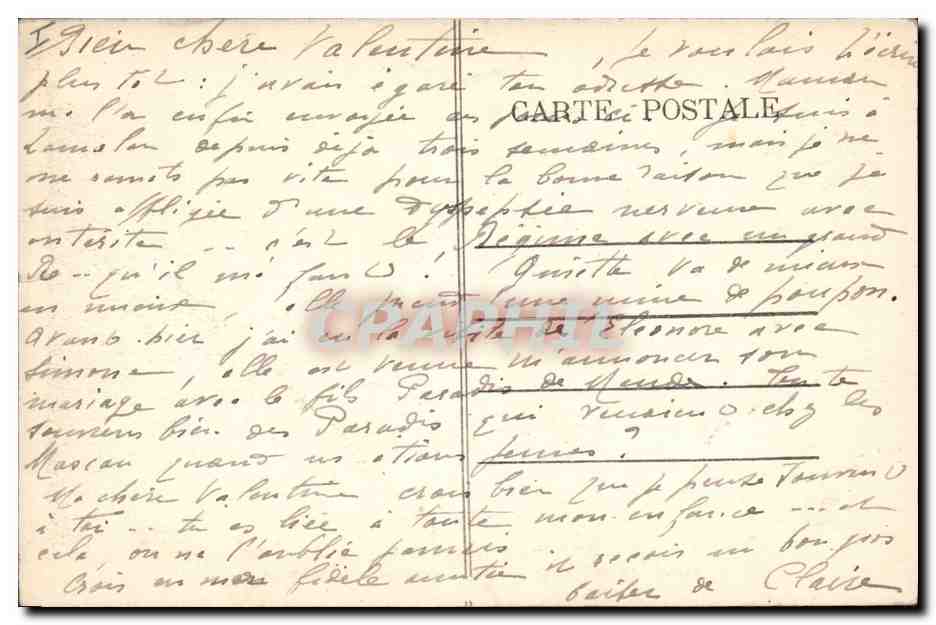 Bien chère Valentine, je voulais t'écrire
plus tôt : j'avais égaré ton adresse. Maman
m. l'a enfin envoyée ces jours-ci je suis à
Lamalou depuis déjà trois semaines, mais je ne
me remets pas vite pour la bonne raison que je
suis affligée d'une dyspepsie nerveuse avec
entérite .. c'est le Régime avec un grand
Re.. qu'il me faut ! Quiette va de mieux
en mieux, elle prend une mine de poupon.
Avant-hier j'ai eu la visite de Eléonore avec
Simone, elle est venue m'annoncer son
mariage avec le fils Paradis de Mende. Tu te
souviens bien des Paradis qui venaient chez les
Mascou quand ns étions jeunes ?
Ma chère Valentine crois bien que je pense souvent
à toi .. tu es liée à toute mon enfance ... et
cela on ne l'oublie jamais
Crois en mon fidèle amitié et reçois un bon gros
baiser de Claire
CARTE POSTALE
CPAPHIL